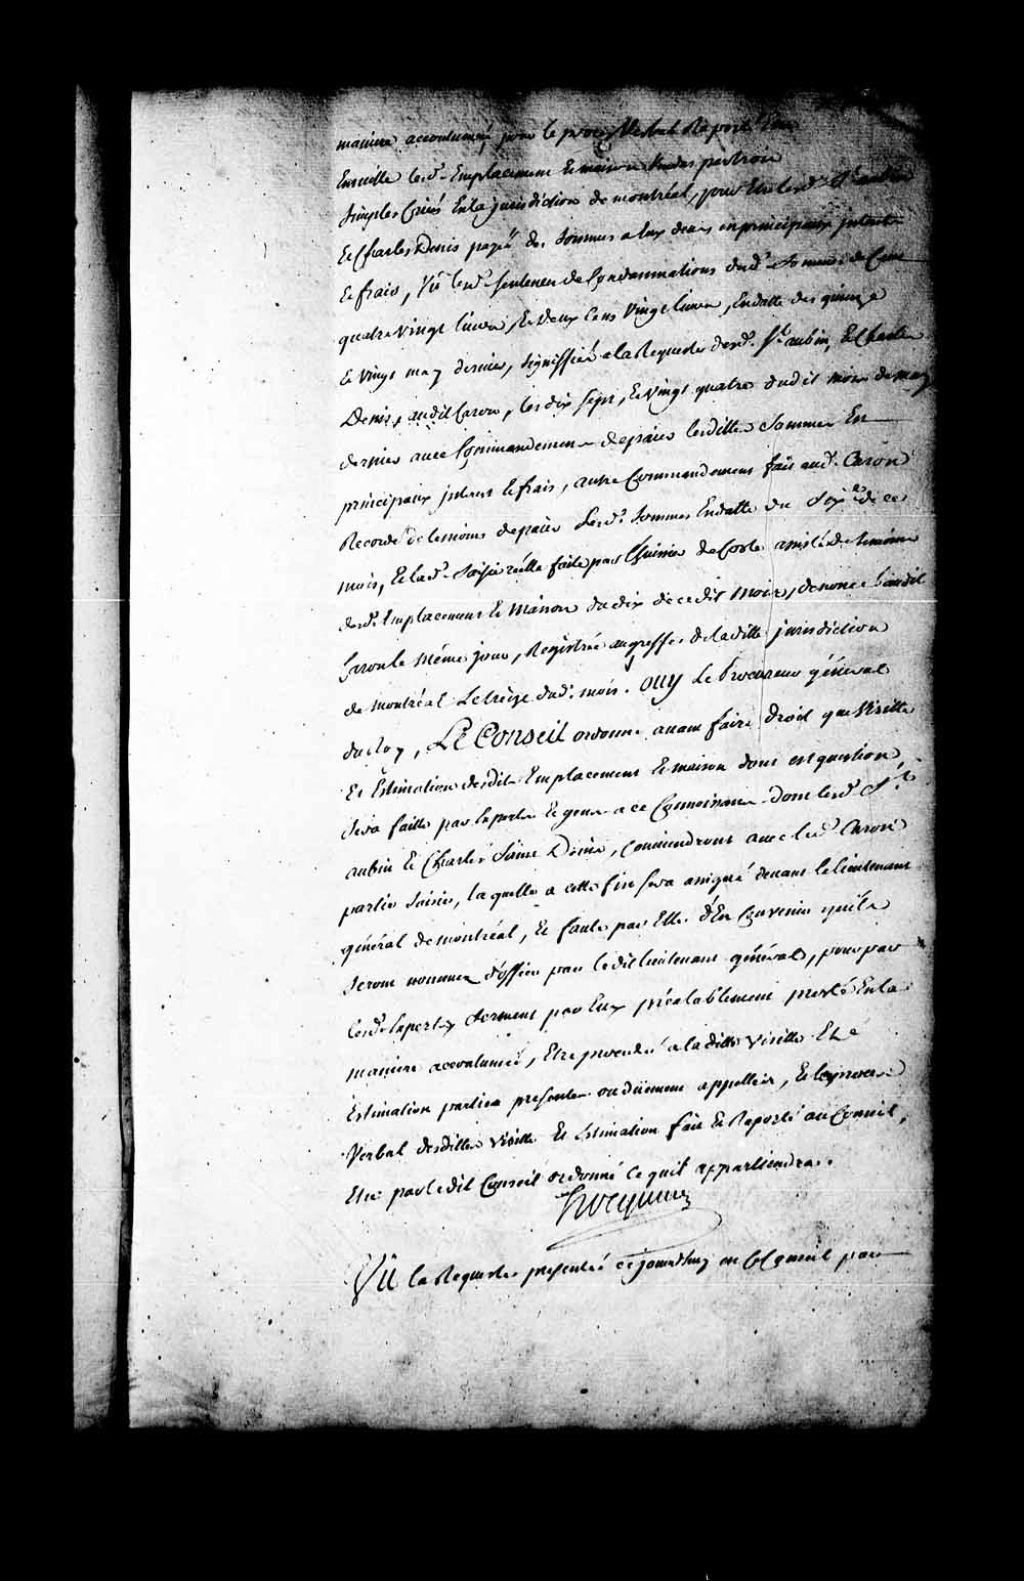 maniere accoutumée, pour le procès Verbal Raporté
Ensuitte lesd. Emplacement Et maison Vendus par trois
simples Criées En la jurisdiction de montréal, pour Etre lesd. St. aubin
Et Charles Denis payés des sommes a Eux deues en principaux interests
Et frais, Vû lesd. sentences de Condamnations desd. sommes de Cent
quatre Vingt livres, Et deux Cens Vingt livres, En datte des quinze
Et Vingt may dernier, signiffiées a la Requeste desd. St. aubin, Et Charles
Denis, audit Caron, les dix sept, Et Vingt quatre dudit mois de may
dernier avec Commandement de païer lesdittes sommes En
principaux interest Et frais, autre Commandement fait aud. Caron
Recordé de tesmoins de païer lesd. sommes En datte du Six.e de ce
mois, Et lad. saisie réelle faite par huissier de Coste assisté de témoins
desd. Emplacement Et Maison du dix de cedit mois, denoncé audit
Caron le même jour, Registrée au greffe de laditte jurisdiction
de montréal Le treize dud. mois. Ouy Le Procureur général
du Roy, LE Conseil ordonne avant faire droit que Visitte
Et Estimation desdits Emplacement Et maison dont est question,
sera faitte par Experts Et gens a ce Connoissans dont lesd. St.
aubin Et Charles Denis, Conviendront avec led. Caron
partie saisie, laquelle a cette fin sera assigné devant le lieutenant
général de montréal, Et faute par Elle d'En Convenir quils
seront nommez d'office par ledit lieutenant général, pour par
lesd. Experts serment par Eux préalablement presté En la
maniere accoutumée, Etre procedé a laditte Visitte Et
Estimation parties presentes ou düement appellées, Et le procès
Verbal desdittes Visitte Et Estimation fait Et Raporté au Conseil,
Etre par ledit Conseil ordonné ce quil appartiendra.
Hocquart
Vû la Requeste presentée cejourdhuy en ce Conseil par